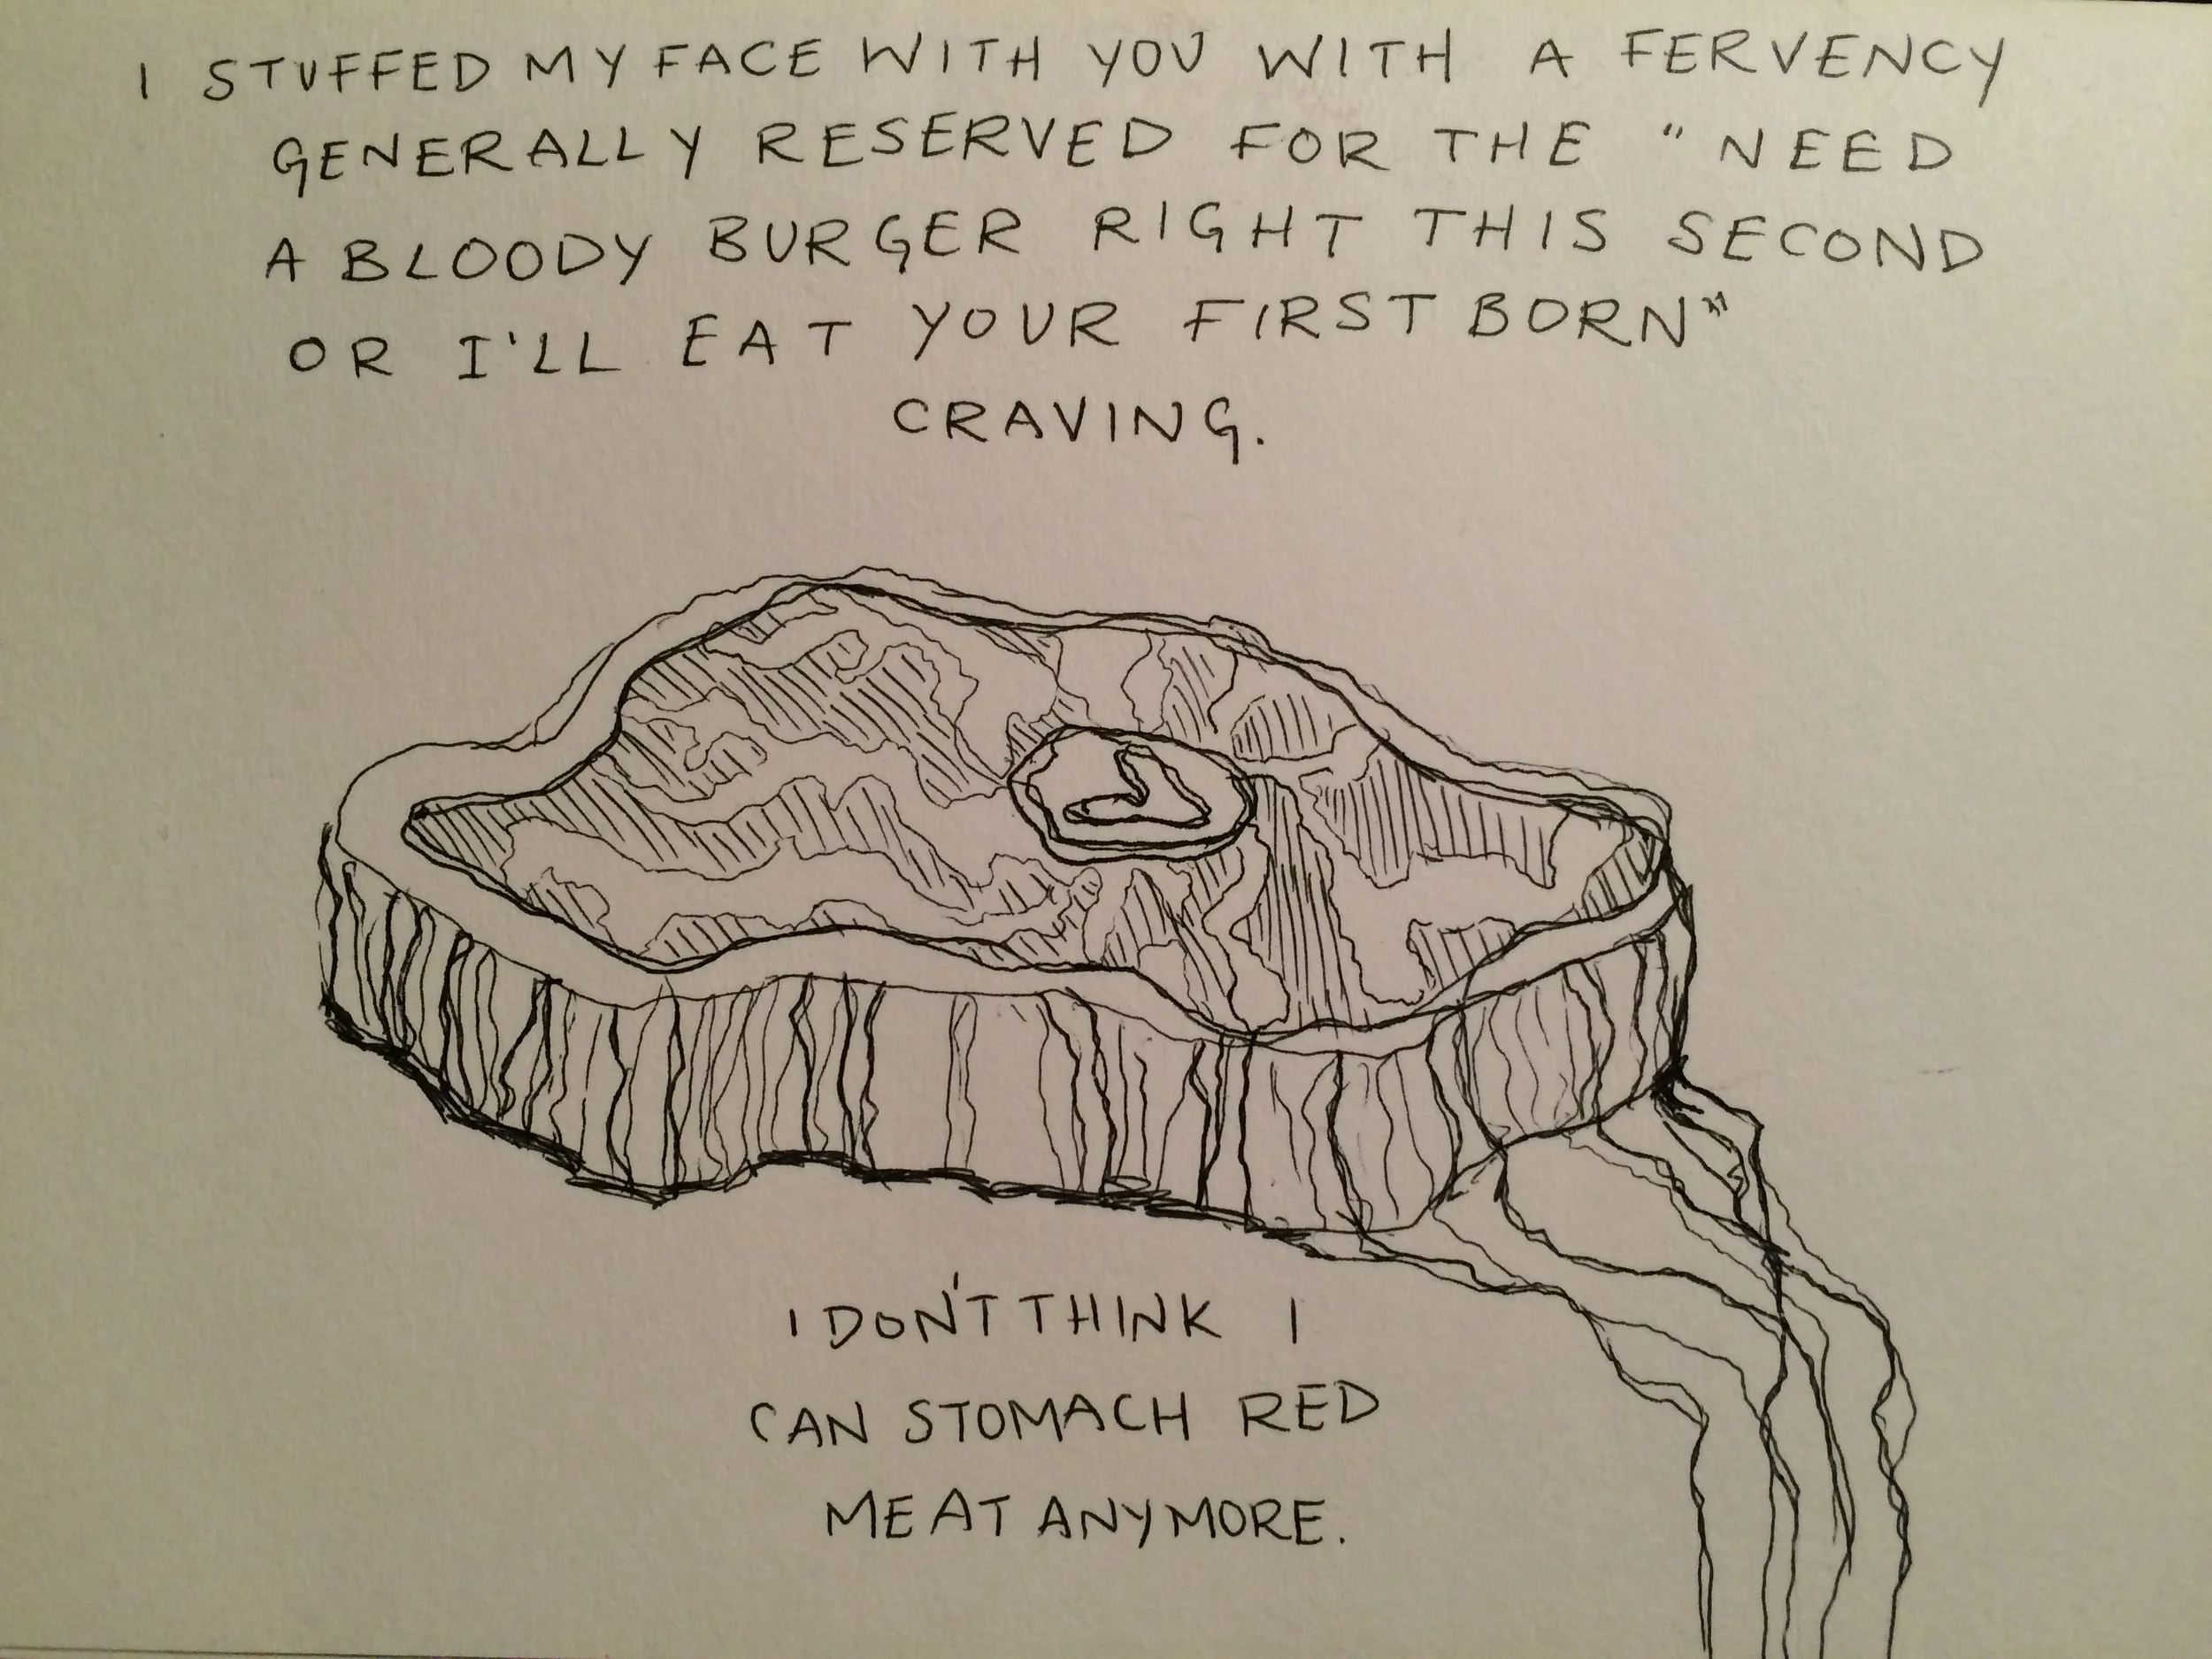 I STUFFED MY FACE WITH YOU WITH A FERVENCY
GENERALLY RESERVED FOR THE "NEED
A BLOODY BURGER RIGHT THIS SECOND
OR I'LL EAT YOUR FIRST BORN"
CRAVING.
I DON'T THINK I
CAN STOMACH RED
MEAT ANYMORE.